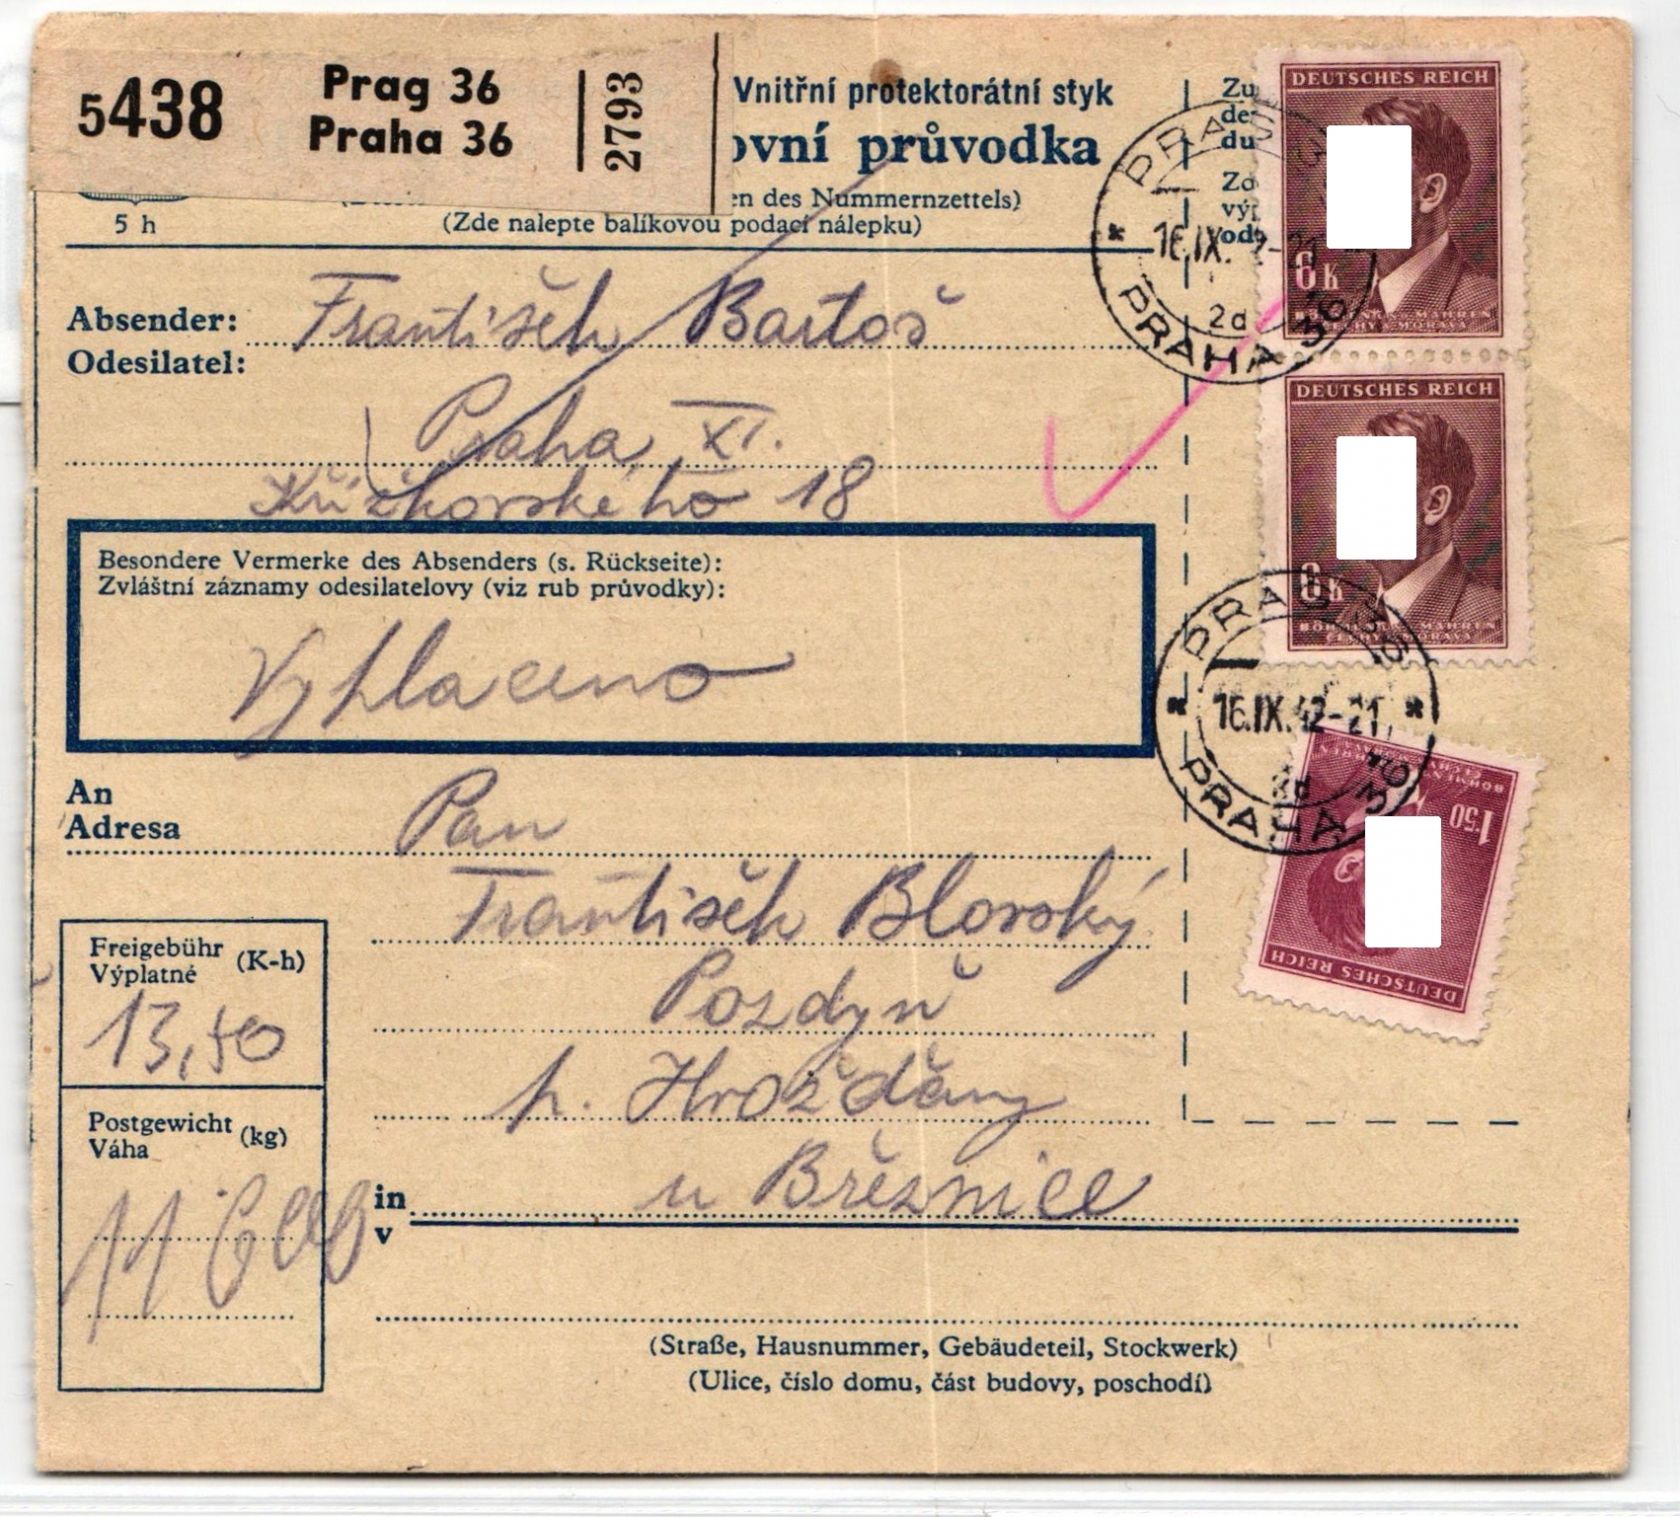 5438
Prag 36
Praha 36
2793
Vnitřní protektorátní styk
ovní průvodka
en des Nummernzettels)
5 h
(Zde nalepte balíkovou podací nálepku)
Absender:
Odesilatel:
František Bartoš
Praha XI.
Křížkovského 18
Besondere Vermerke des Absenders (s. Rückseite):
Zvláštní záznamy odesilatelovy (viz rub průvodky):
Vyplaceno
An
Adresa
Pan
František Blovský
Pozdyň
p. Hvožďany
u Březnice
in
v
Freigebühr
Výplatné
(K-h)
13,50
Postgewicht
Váha
(kg)
11
(Straße, Hausnummer, Gebäudeteil, Stockwerk)
(Ulice, číslo domu, část budovy, poschodí)
Zu
de
du
Zo
výp
od
DEUTSCHES REICH
6 K
BÖHMEN U. MÄHREN
ČECHY A MORAVA
PRAG 36
16.IX. 2-21
2d
PRAHA 36
DEUTSCHES REICH
6 K
BÖHMEN U. MÄHREN
ČECHY A MORAVA
PRAG 36
16.IX.42-21
PRAHA 36
BÖHMEN
1'50
DEUTSCHES REICH